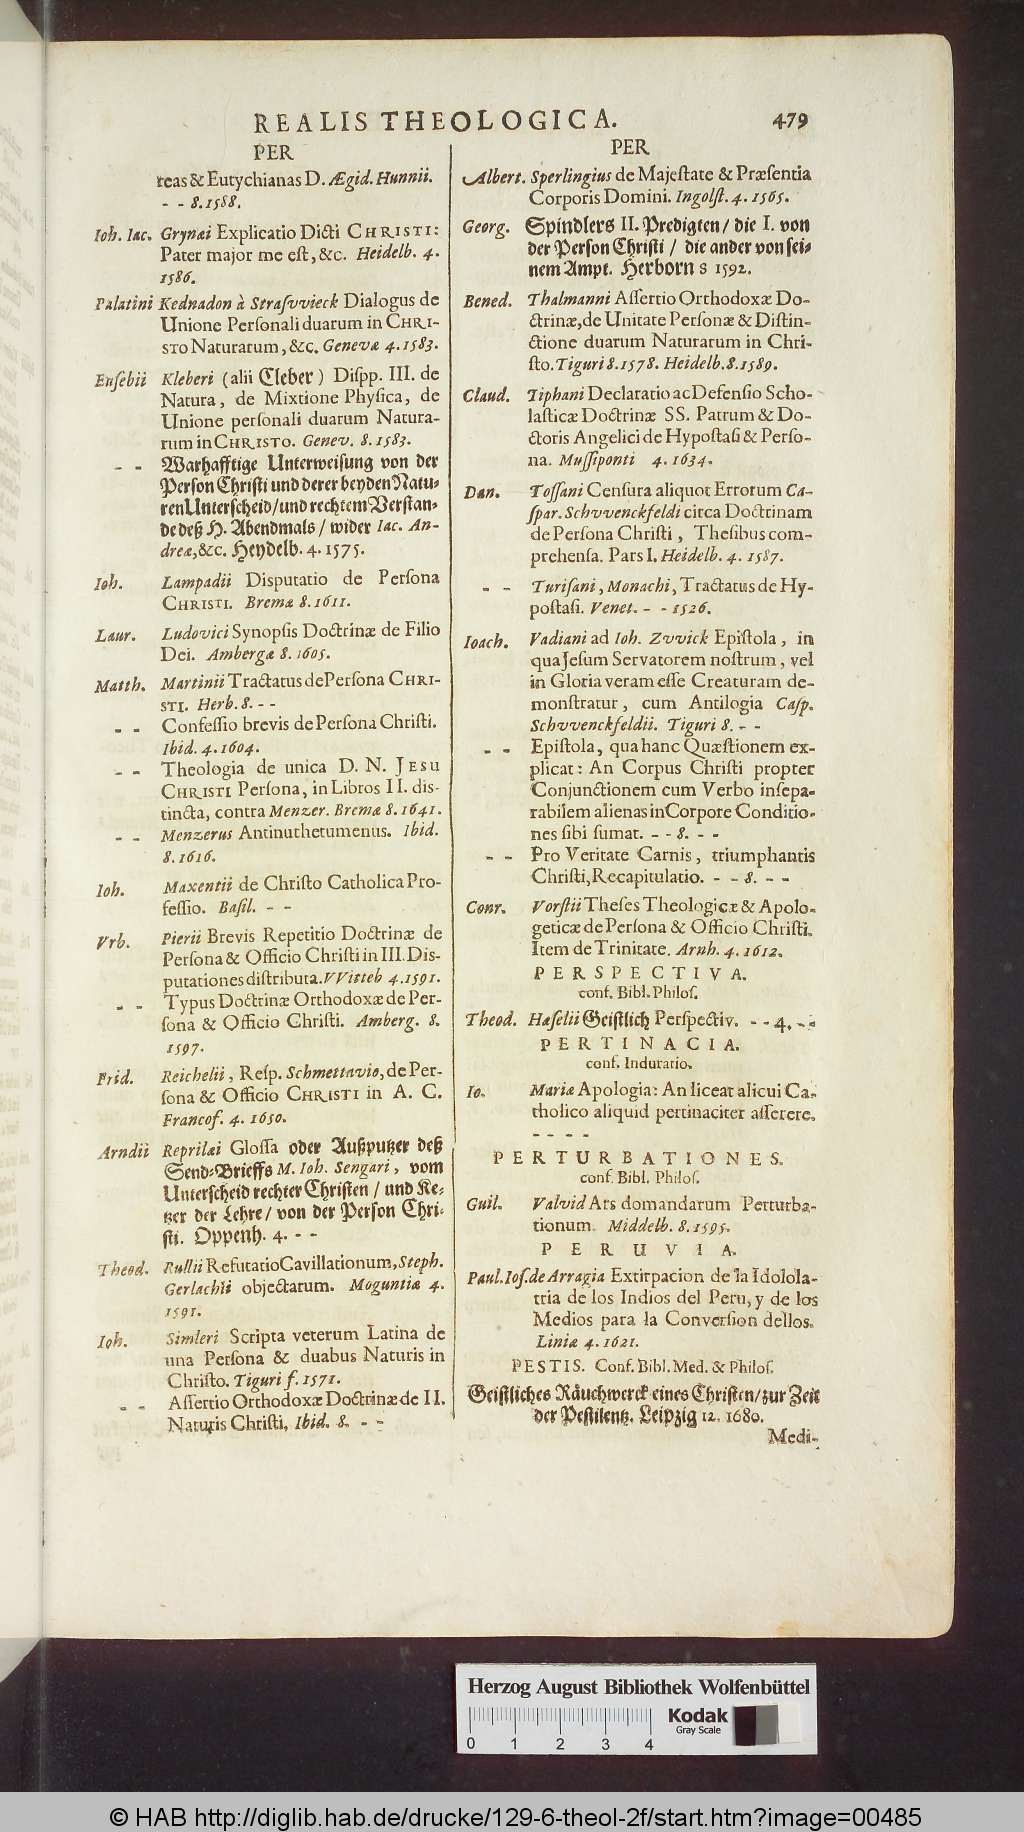 REALIS THEOLOGICA. 479
PER
reas & Eutychianas D. Ægid. Hunnii.
- - 8. 1588.
Ioh. Iac. Grynæi Explicatio Dicti CHRISTI:
Pater major me est, &c. Heidelb. 4.
1586.
Palatini Kednadon à Strasvvieck Dialogus de
Unione Personali duarum in CHRI-
STO Naturarum, &c. Genevæ 4. 1583.
Eusebii Kleberi (alii Cleber) Dispp. III. de
Natura, de Mixtione Physica, de
Unione personali duarum Natura-
rum in CHRISTO. Genev. 8. 1583.
- - Warhafftige Unterweisung von der
Person Christi und derer beyden Natu-
ren Unterscheid / und rechtem Verstan-
de deß H. Abendmals / wider Iac. An-
dreæ, &c. Heydelb. 4. 1575.
Ioh. Lampadii Disputatio de Persona
CHRISTI. Bremæ 8. 1611.
Laur. Ludovici Synopsis Doctrinæ de Filio
Dei. Ambergæ 8. 1605.
Matth. Martinii Tractatus de Persona CHRI-
STI. Herb. 8. - -
- - Confessio brevis de Persona Christi.
Ibid. 4. 1604.
- - Theologia de unica D. N. JESU
CHRISTI Persona, in Libros II. dis-
tincta, contra Menzer. Bremæ 8. 1641.
- - Menzerus Antinuthetumenus. Ibid.
8. 1616.
Ioh. Maxentii de Christo Catholica Pro-
fessio. Basil. - -
Vrb. Pierii Brevis Repetitio Doctrinæ de
Persona & Officio Christi in III. Dis-
putationes distributa. VVitteb 4. 1591.
- - Typus Doctrinæ Orthodoxæ de Per-
sona & Officio Christi. Amberg. 8.
1597.
Frid. Reichelii, Resp. Schmettavio, de Per-
sona & Officio CHRISTI in A. C.
Francof. 4. 1650.
Arndii Reprilæi Glossa oder Außputzer deß
Send-Brieffs M. Ioh. Sengari, vom
Unterscheid rechter Christen / und Ke-
tzer der Lehre / von der Person Chri-
sti. Oppenh. 4. - -
Theod. Rullii Refutatio Cavillationum, Steph.
Gerlachii objectarum. Moguntiæ 4.
1591.
Ioh. Simleri Scripta veterum Latina de
una Persona & duabus Naturis in
Christo. Tiguri f. 1571.
- - Assertio Orthodoxæ Doctrinæ de II.
Naturis Christi, Ibid. 8. - -
PER
Albert. Sperlingius de Majestate & Præsentia
Corporis Domini. Ingolst. 4. 1565.
Georg. Spindlers II. Predigten / die I. von
der Person Christi / die ander von sei-
nem Ampt. Herborn 8 1592.
Bened. Thalmanni Assertio Orthodoxæ Do-
ctrinæ, de Unitate Personæ & Distin-
ctione duarum Naturarum in Chri-
sto. Tiguri 8. 1578. Heidelb. 8. 1589.
Claud. Tiphani Declaratio ac Defensio Scho-
lasticæ Doctrinæ SS. Patrum & Do-
ctoris Angelici de Hypostasi & Perso-
na. Mussiponti 4. 1634.
Dan. Tossani Censura aliquot Errorum Ca-
spar. Schvvenckfeldi circa Doctrinam
de Persona Christi, Thesibus com-
prehensa. Pars I. Heidelb. 4. 1587.
- - Turisani, Monachi, Tractatus de Hy-
postasi. Venet. - - 1526.
Ioach. Vadiani ad Ioh. Zvvick Epistola, in
qua Jesum Servatorem nostrum, vel
in Gloria veram esse Creaturam de-
monstratur, cum Antilogia Casp.
Schvvenckfeldii. Tiguri 8. - -
- - Epistola, qua hanc Quæstionem ex-
plicat: An Corpus Christi propter
Conjunctionem cum Verbo insepa-
rabilem alienas in Corpore Conditio-
nes sibi sumat. - - 8. - -
- - Pro Veritate Carnis, triumphantis
Christi, Recapitulatio. - - 8. - -
Conr. Vorstii Theses Theologicæ & Apolo-
geticæ de Persona & Officio Christi.
Item de Trinitate. Arnh. 4. 1612.
PERSPECTIVA.
conf. Bibl. Philos.
Theod. Haselii Geistlich Perspectiv. - - 4. - -
PERTINACIA.
conf. Induratio.
Io. Mariæ Apologia: An liceat alicui Ca-
tholico aliquid pertinaciter asserere.
- - - -
PERTURBATIONES.
conf. Bibl. Philos.
Guil. Valvid Ars domandarum Perturba-
tionum. Middelb. 8. 1595.
PERUVIA.
Paul. Ios. de Arragia Extirpacion de la Idolola-
tria de los Indios del Peru, y de los
Medios para la Conversion dellos.
Limæ 4. 1621.
PESTIS. Conf. Bibl. Med. & Philos.
Geistliches Räuchwerck eines Christen / zur Zeit
der Pestilentz. Leipzig 12. 1680.
Medi-
Herzog August Bibliothek Wolfenbüttel
Kodak
Gray Scale
0 1 2 3 4
© HAB http://diglib.hab.de/drucke/129-6-theol-2f/start.htm?image=00485